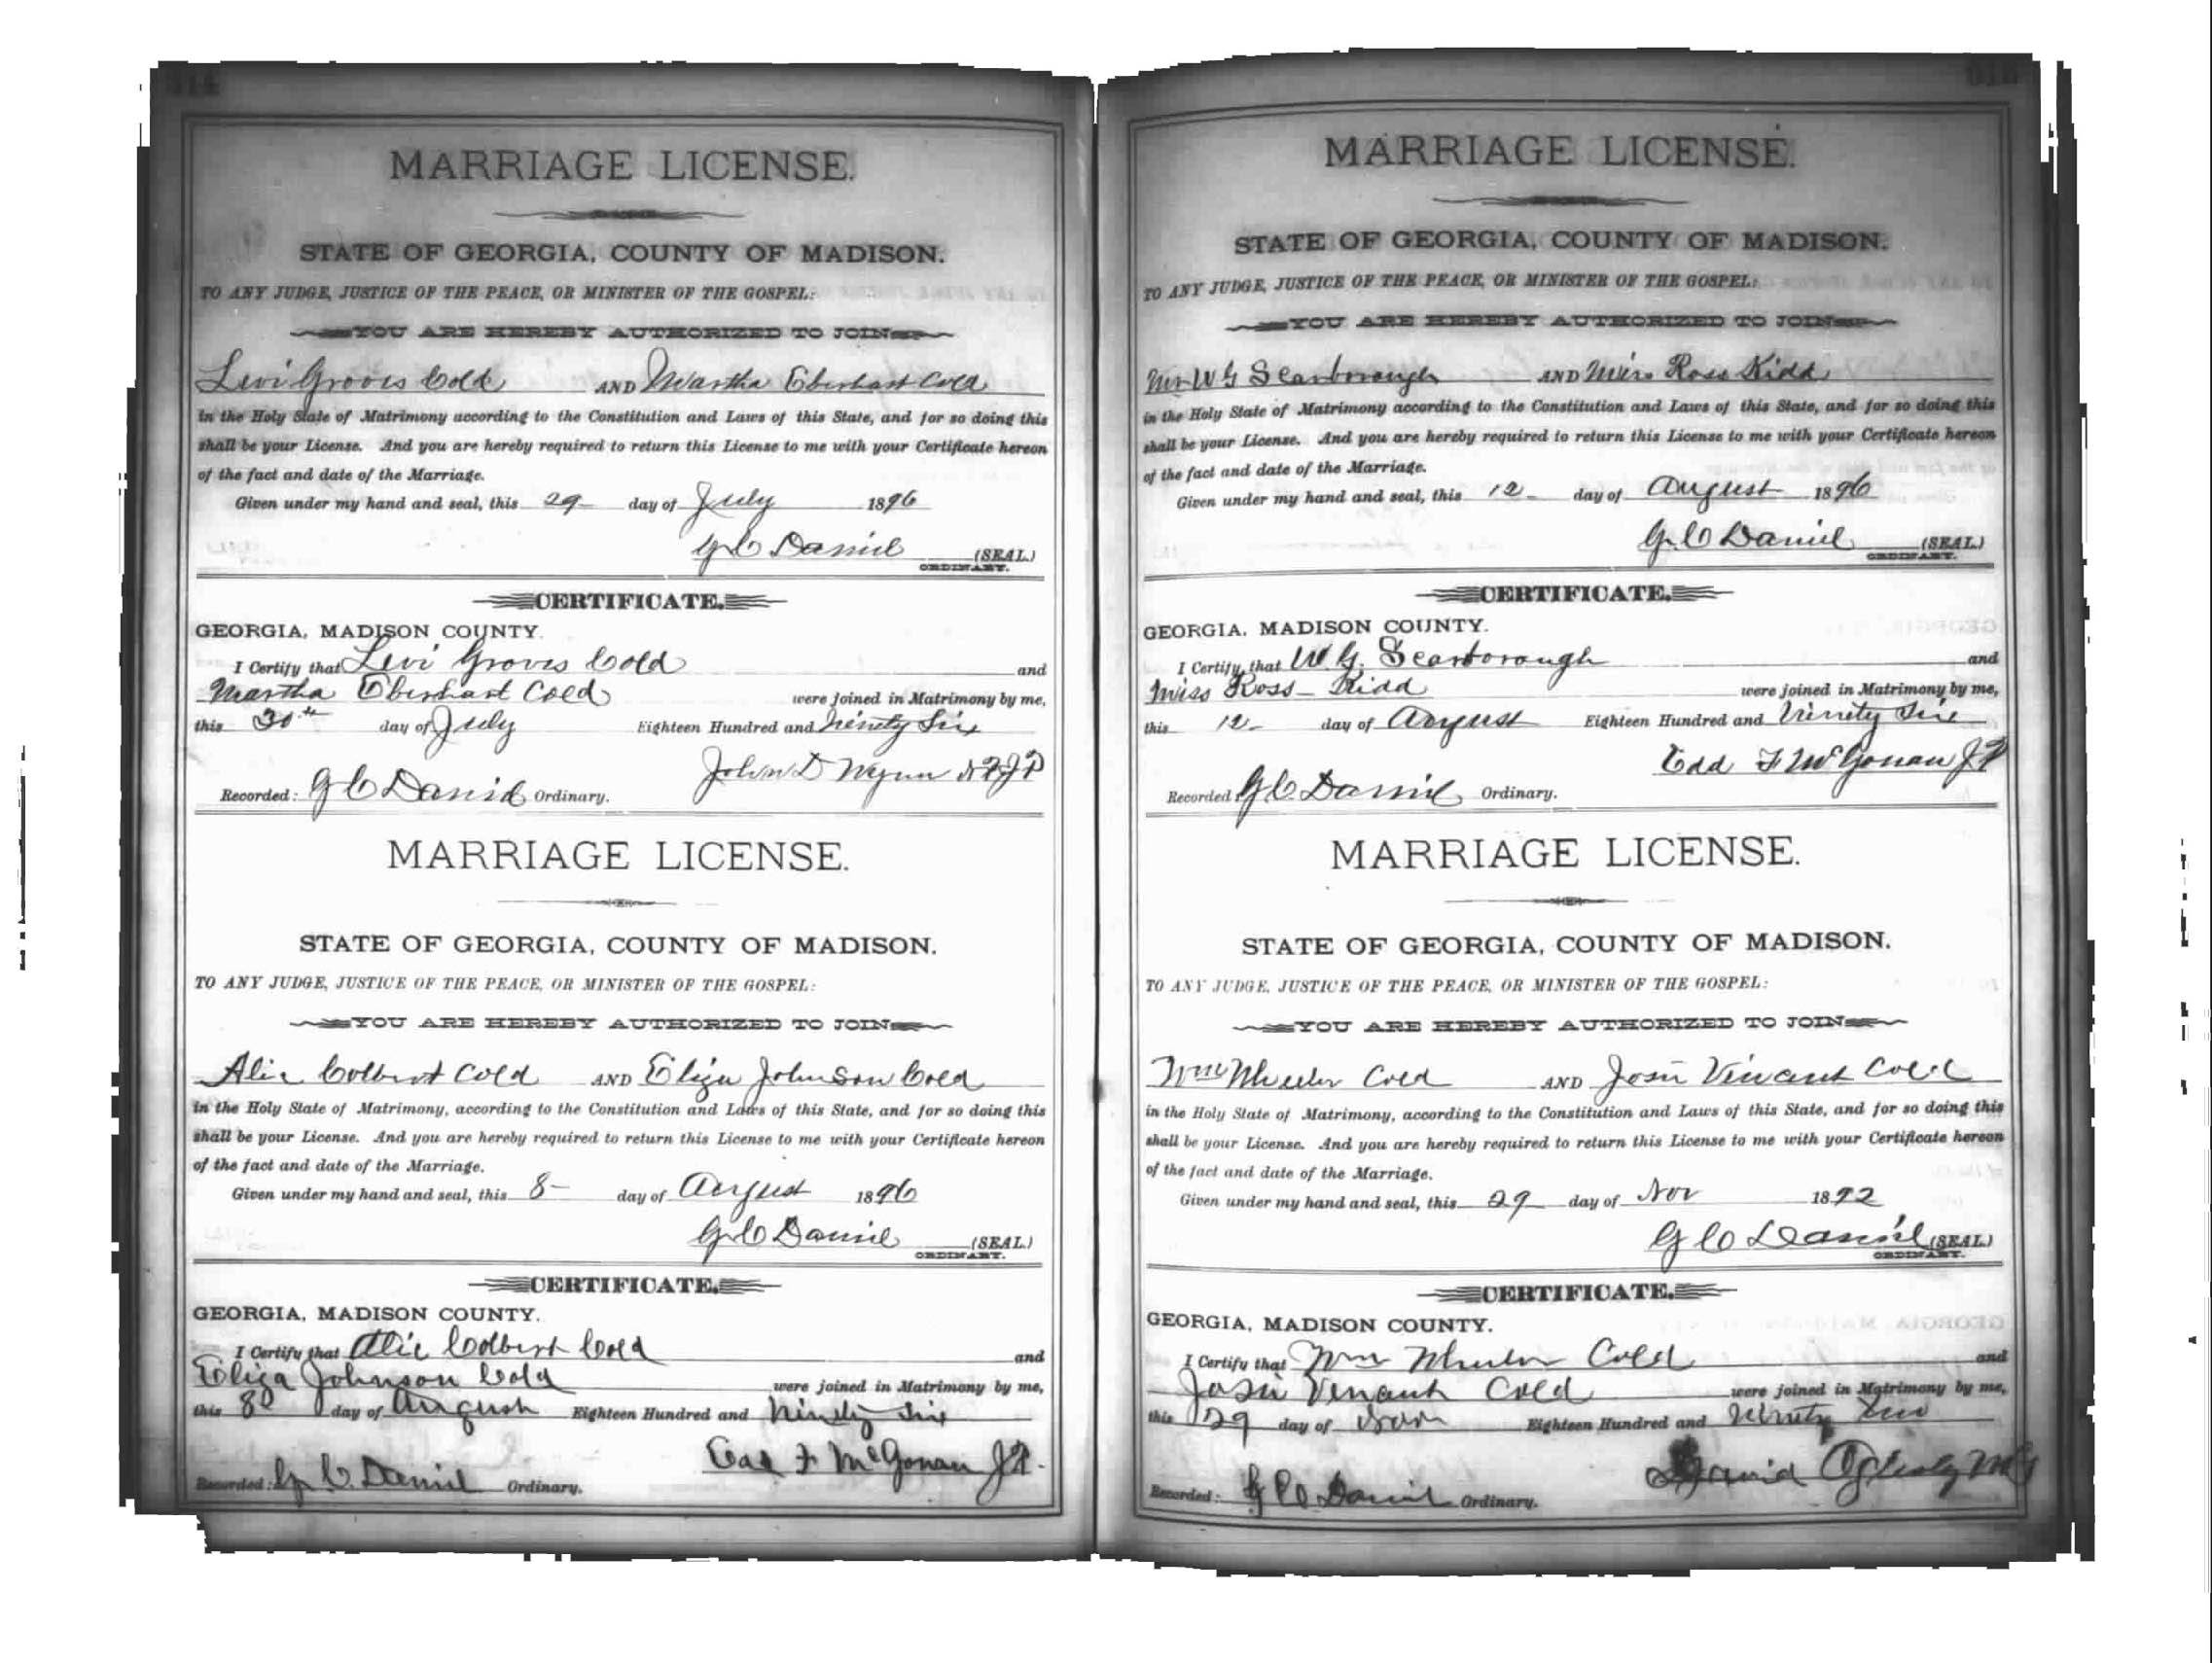 314
MARRIAGE LICENSE.
STATE OF GEORGIA, COUNTY OF MADISON.
TO ANY JUDGE, JUSTICE OF THE PEACE, OR MINISTER OF THE GOSPEL:
YOU ARE HEREBY AUTHORIZED TO JOIN
Levi Groves Cold AND Martha Eberhart Cold
in the Holy State of Matrimony according to the Constitution and Laws of this State, and for so doing this
shall be your License. And you are hereby required to return this License to me with your Certificate hereon
of the fact and date of the Marriage.
Given under my hand and seal, this 29 day of July 1896
G C Daniel (SEAL.)
ORDINARY.
CERTIFICATE.
GEORGIA, MADISON COUNTY.
I Certify that Levi Groves Cold and
Martha Eberhart Cold were joined in Matrimony by me,
this 30th day of July Eighteen Hundred and Ninety Six
John D Wynn N P J P
Recorded: G C Daniel Ordinary.
MARRIAGE LICENSE.
STATE OF GEORGIA, COUNTY OF MADISON.
TO ANY JUDGE, JUSTICE OF THE PEACE, OR MINISTER OF THE GOSPEL:
YOU ARE HEREBY AUTHORIZED TO JOIN
Alic Colbert Cold AND Eliza Johnson Cold
in the Holy State of Matrimony, according to the Constitution and Laws of this State, and for so doing this
shall be your License. And you are hereby required to return this License to me with your Certificate hereon
of the fact and date of the Marriage.
Given under my hand and seal, this 8 day of August 1896
G C Daniel (SEAL.)
ORDINARY.
CERTIFICATE.
GEORGIA, MADISON COUNTY.
I Certify that Alic Colbert Cold and
Eliza Johnson Cold were joined in Matrimony by me,
this 8 day of August Eighteen Hundred and Ninety Six
Edd F McGonan J P
Recorded: G C Daniel Ordinary.
MARRIAGE LICENSE.
STATE OF GEORGIA, COUNTY OF MADISON.
TO ANY JUDGE, JUSTICE OF THE PEACE, OR MINISTER OF THE GOSPEL:
YOU ARE HEREBY AUTHORIZED TO JOIN
Mr W G Scarborough AND Miss Ross Kidd
in the Holy State of Matrimony according to the Constitution and Laws of this State, and for so doing this
shall be your License. And you are hereby required to return this License to me with your Certificate hereon
of the fact and date of the Marriage.
Given under my hand and seal, this 12 day of August 1896
G. C Daniel (SEAL.)
ORDINARY.
CERTIFICATE.
GEORGIA, MADISON COUNTY.
I Certify that W. G. Scarborough and
Miss Ross Kidd were joined in Matrimony by me,
this 12 day of August Eighteen Hundred and Ninety Six
Edd F McGonan J P
Recorded G C. Daniel Ordinary.
MARRIAGE LICENSE.
STATE OF GEORGIA, COUNTY OF MADISON.
TO ANY JUDGE, JUSTICE OF THE PEACE, OR MINISTER OF THE GOSPEL:
YOU ARE HEREBY AUTHORIZED TO JOIN
Wm Wheeler Cold AND Josie Vincent Cold
in the Holy State of Matrimony, according to the Constitution and Laws of this State, and for so doing this
shall be your License. And you are hereby required to return this License to me with your Certificate hereon
of the fact and date of the Marriage.
Given under my hand and seal, this 29 day of Nov 1892
G C Daniel (SEAL.)
ORDINARY.
CERTIFICATE.
GEORGIA, MADISON COUNTY.
I Certify that Wm Wheeler Cold and
Josie Vincent Cold were joined in Matrimony by me,
this 29 day of Nov Eighteen Hundred and Ninety two
David Oglesby M G
Recorded: G C Daniel Ordinary.